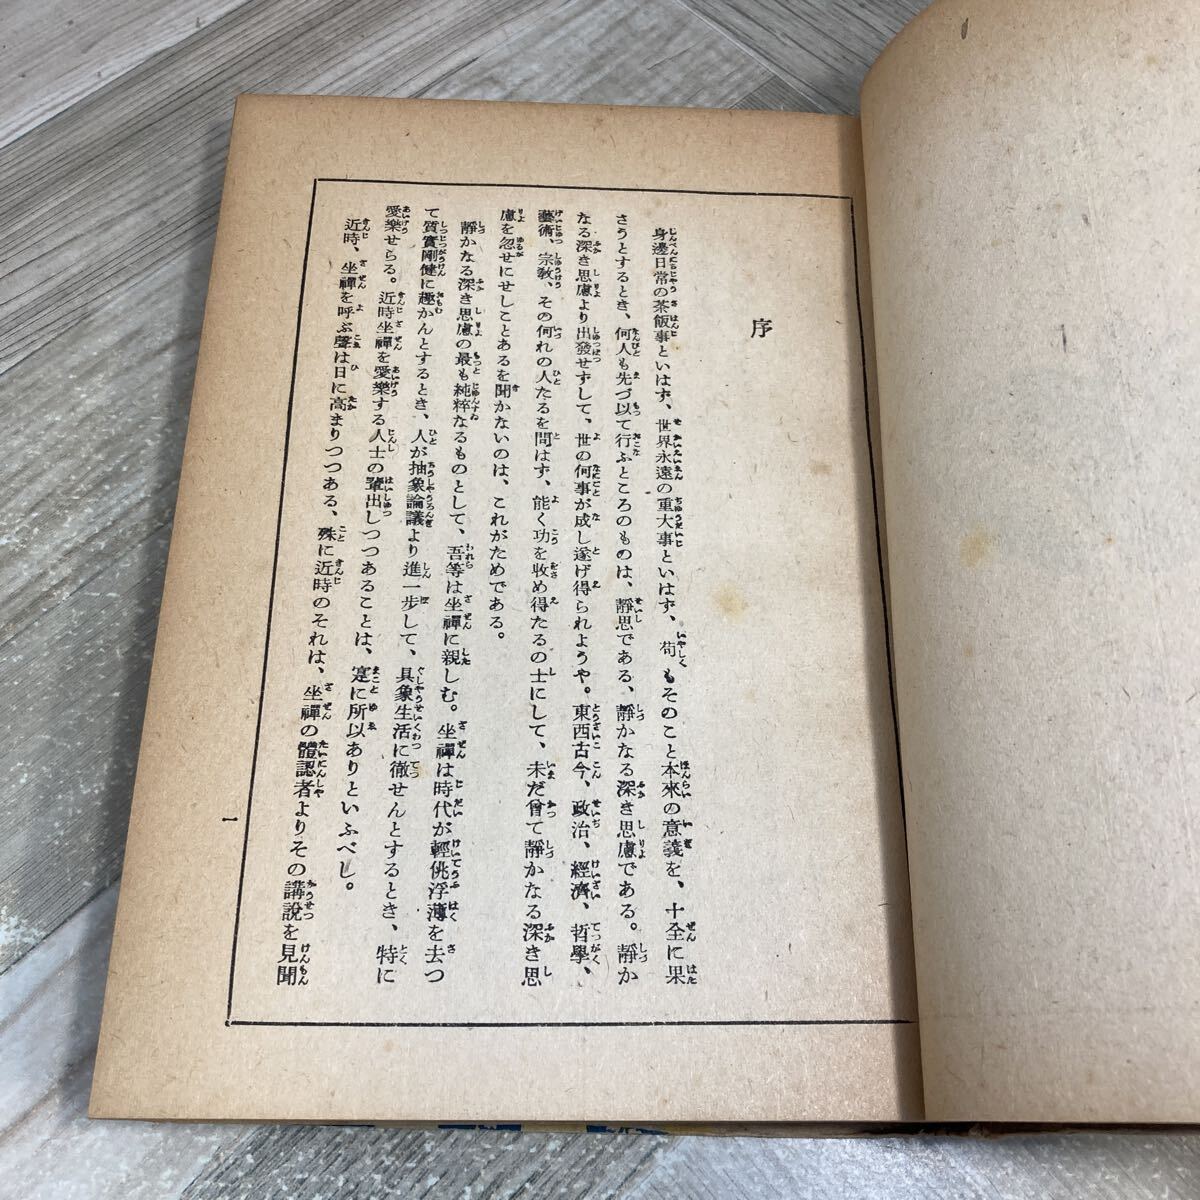 序
身邊日常の茶飯事といはず、世界永遠の重大事といはず、苟もそのこと本來の意義を、十全に果
さうとするとき、何人も先づ以て行ふところのものは、靜思である、靜かなる深き思慮である。靜か
なる深き思慮より出發せずして、世の何事が成し遂げ得られようや。東西古今、政治、經濟、哲學、
藝術、宗教、その何れの人たるを問はず、能く功を收め得たるの士にして、未だ曾て靜かなる深き思
慮を忽せにせしことあるを聞かないのは、これがためである。
靜かなる深き思慮の最も純粹なるものとして、吾等は坐禪に親しむ。坐禪は時代が輕佻浮薄を去つ
て質實剛健に趣かんとするとき、人が抽象論議より進一步して、具象生活に徹せんとするとき、特に
愛樂せらる。近時坐禪を愛樂する人士の輩出しつつあることは、寔に所以ありといふべし。
近時、坐禪を呼ぶ聲は日に高まりつつある、殊に近時のそれは、坐禪の體認者よりその講說を見聞
一